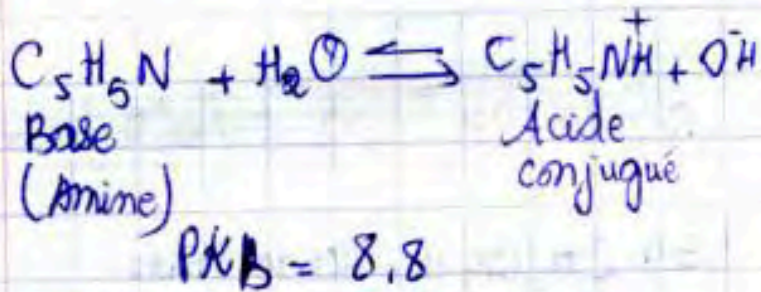 C₅H₅N + H₂O ⇌ C₅H₅NH⁺ + O⁻H
Base Acide
(Amine) conjugué
PKB = 8,8